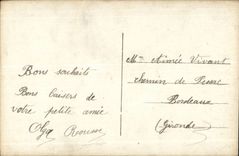 Bons souhaits
Bons baisers de
votre petite amie
Olga
Mlle Aimée Vivant
chemin de
Bordeaux
(Gironde)